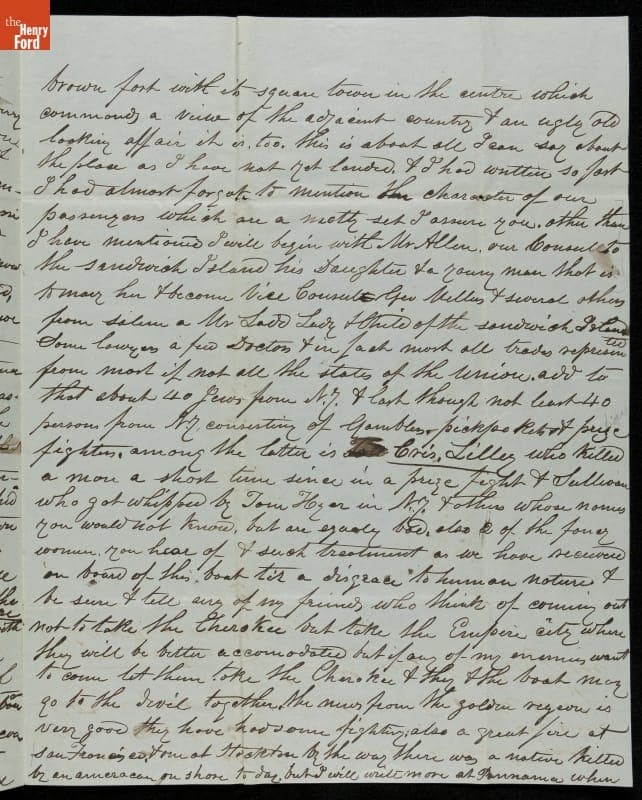 the
Henry
Ford
brown fort with its square town in the centre which
commands a view of the adjacent country & an ugly old
looking affair it is, too. this is about all I can say about
the place as I have not yet landed, & I had written so fast
I had almost forgot to mention the character of our
passengers which are a motly set I assure you. other than
I have mentioned I will begin with Mr Allen. our Consul to
the Sandwich Island his Daughter & a young man that is
to marry her & become Vice Consul Geo Mellus & several others
from salem a Mr Ladd Lady & Child of the sandwich Island
Some lawyers a few Doctors & in fact most all trades represented
from most if not all the states of the Union. add to
that about 40 Jews from N.Y. & last though not least 40
persons from N.Y. consisting of Gamblers, pickpockets & prize
fighters, among the latter is Cris. Lilley who killed
a man a short time since in a prize fight & Sullivan
who got whipped by Tom Hyer in N.Y. & others whose names
you would not know, but are equaly bad. also of the fancy
women. you hear of & such treatment as we have received
on board of this boat tis a disgrace to human nature &
be sure & tell any of my friends who think of coming out
not to take the Cherokee but take the Empire City where
they will be better accomodated but if any of my enemies want
to come let them take the Cherokee & they & the boat may
go to the Devil together. the news from the golden regeon is
very good they have had some fighting, also a great fire at
San Francisco & one at Stockton by the way there was a native killed
by an american on shore to day, but I will write more at Pannama when